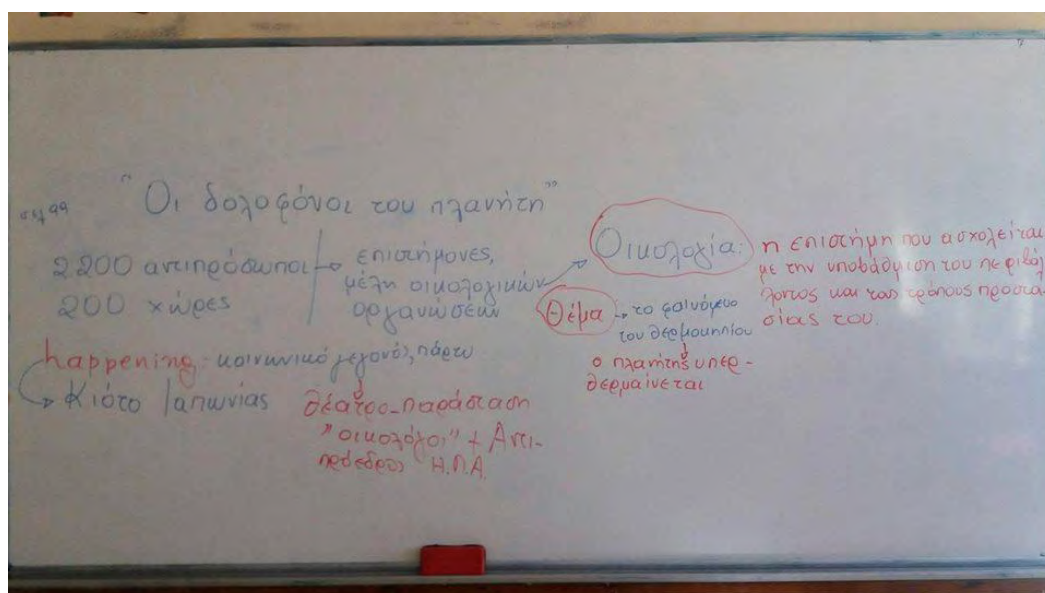 σελ 99 "Οι δολοφόνοι του πλανήτη"
2200 αντιπρόσωποι → επιστήμονες,
200 χώρες
μέλη οικολογικών
οργανώσεων
happening: κοινωνικό γεγονός, πάρτυ
Κιότο Ιαπωνίας
θέατρο-παράσταση
"οικολόγοι" + Αντι-
πρόεδρος Η.Π.Α.
Οικολογία: η επιστήμη που ασχολείται
με την υποβάθμιση του περιβάλ
λοντος και τους τρόπους προστα
σίας του.
Θέμα → το φαινόμενο
του θερμοκηπίου
ο πλανήτης υπερ-
θερμαίνεται